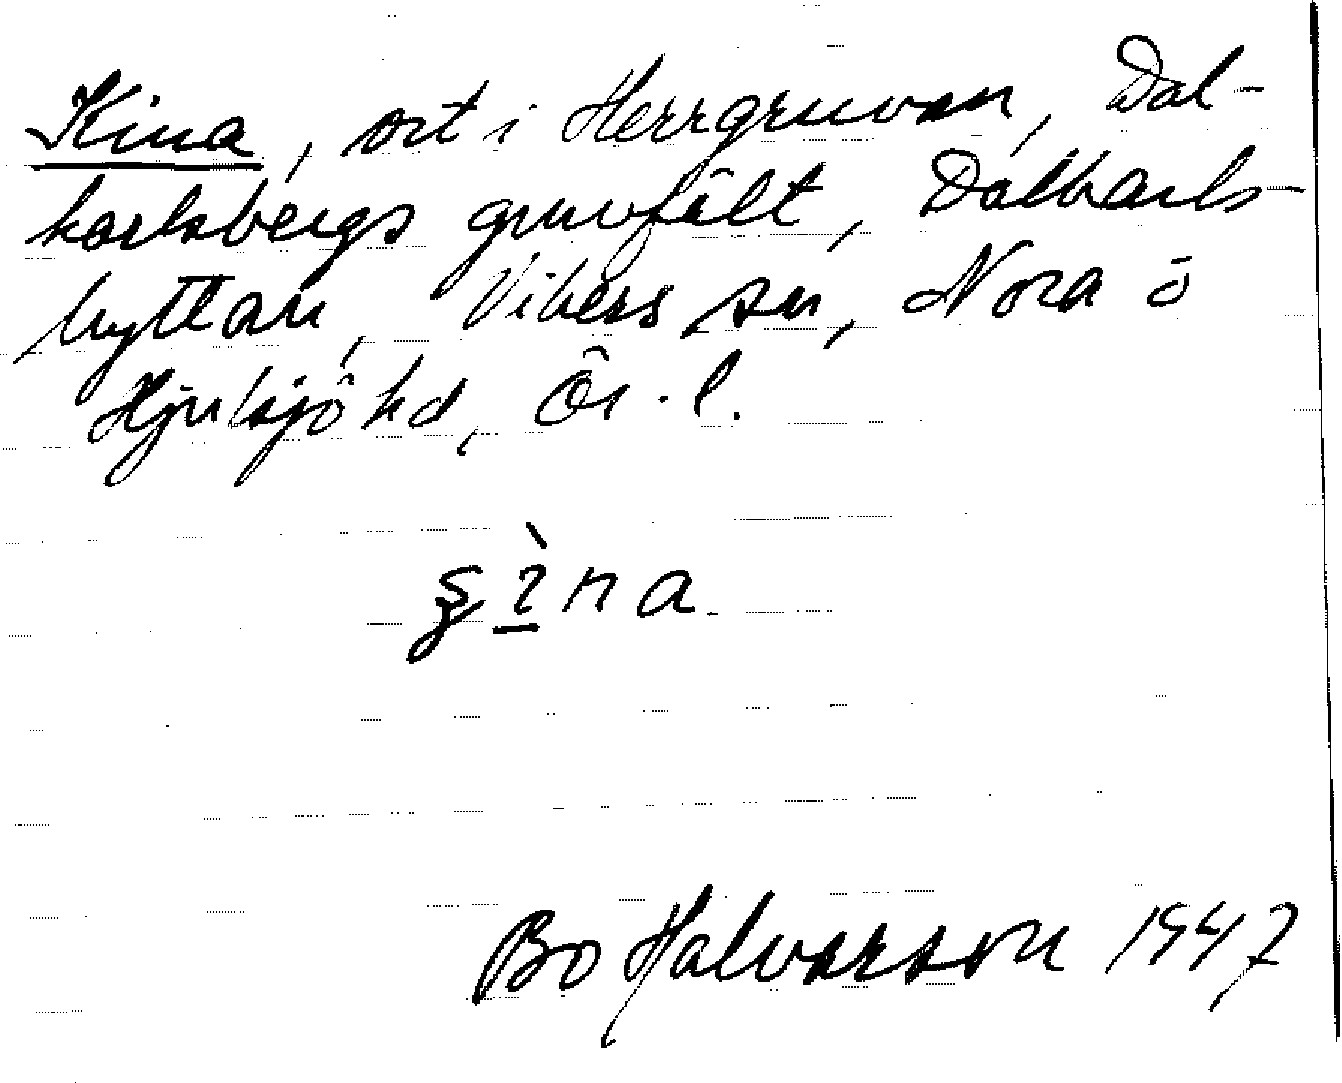 Kina, ort i Herrgruvan, Dal-
karlsbergs gruvfält, Dalkarls-
hyttan, Vikers sn, Nora ö
Hjulsjö hd, Ör. l.
1947
Bo Halvarson